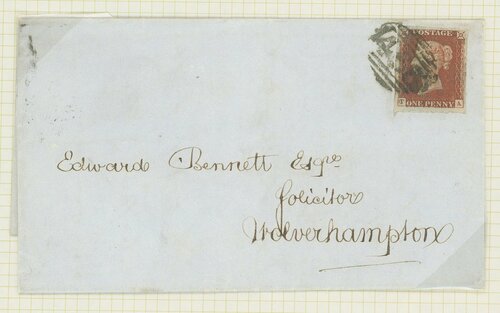 POSTAGE
ONE PENNY
A
Edward Bennett Esqre
Solicitor
Wolverhampton